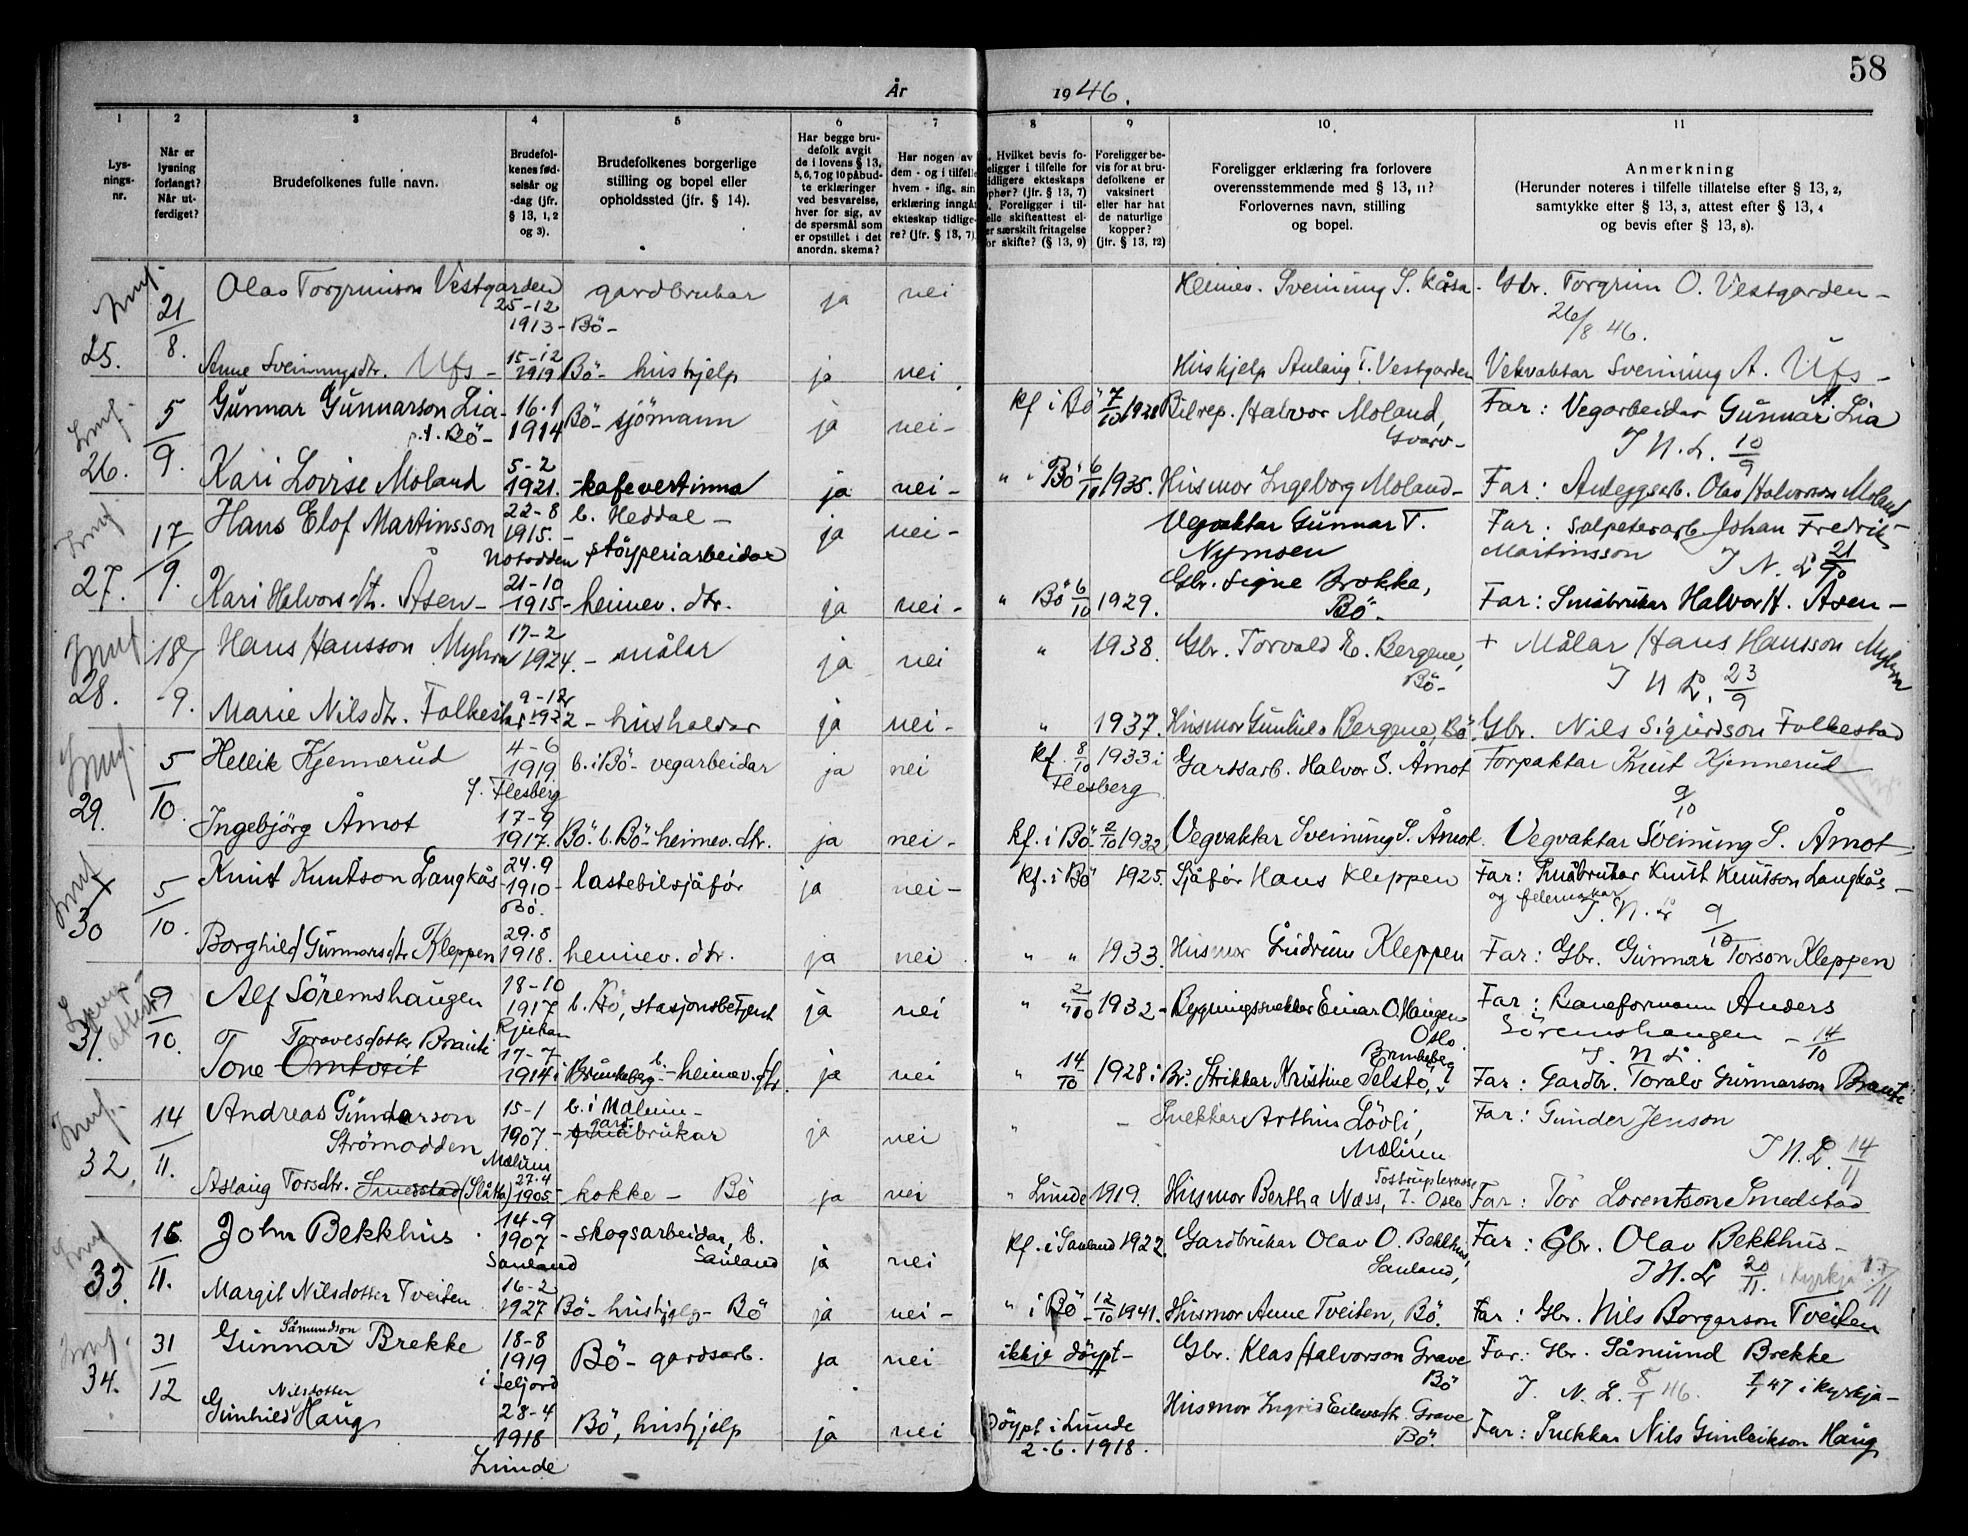 58
År 1946.
1 2 3 4 5 6 7 8 9 10 11
Lysningsnr.
Når er lysning forlangt? Når utferdiget?
Brudefolkenes fulle navn.
Brudefolkenes fødselsår og -dag (jfr. § 13, 1, 2 og 3).
Brudefolkenes borgerlige stilling og bopel eller opholdssted (jfr. § 14).
Har begge brudefolk avgit de i lovens § 13, 5, 6, 7 og 10 påbudte erklæringer ved besvarelse, hver for sig, av de spørsmål som er opstillet i det anordn. skema?
Har nogen av dem - og i tilfelle hvem - iflg. sin erklæring inngått ekteskap tidligere? (jfr. § 13, 7)
Hvilket bevis foreligger i tilfelle for tidligere ekteskaps ophør? (jfr. § 13, 7) Foreligger i tilfelle skifteattest eller særskilt fritagelse for skifte? (§ 13, 9)
Foreligger bevis for at brudefolkene er vaksinert eller har hat de naturlige kopper? (jfr. § 13, 12)
Foreligger erklæring fra forlovere overensstemmende med § 13, 11? Forlovernes navn, stilling og bopel.
Anmerkning (Herunder noteres i tilfelle tillatelse efter § 13, 2, samtykke efter § 13, 3, attest efter § 13, 4 og bevis efter § 13, 8).
25. 21/8. Olav Torgrimson Vestgarden 25-12 1913 - gardbrukar Bö - ja nei Heimev. Sveinung S. Kåsa - Gbr. Torgrim O. Vestgarden -
26/8 46.
Anne Sveinungsdtr. Ufs - 15-12 1919 Bö - hushjelp ja nei Hushjelp Aslaug T. Vestgarden Vekvaktar Sveinung A. Ufs -
26. 5/9. Gunnar Gunnarson Lia - f. i Bö - 16.1 1914 Bö - sjömann ja nei - kf i Bö 7/10 1928 Bilrep. Halvor Moland, Far: Vegarbeidar Gunnar A. Lia
I N. L. 10/9
Kari Lovise Moland 5-2 1921. - kafevertinna ja nei - " i Bö 6/10 1935. Husmor Ingeborg Moland - Far: Anleggsarb. Olav Halvorson Moland
27. 17/9. Hans Elof Martinsson 22-8 1915. - Notodden b. Heddal - støyperiarbeidar ja nei - Vegvaktar Gunnar T. Nymoen Far: Salpeterarb. Johan Fredrik Martinsson I N. L 21/10
Kari Halvorsdtr. Åsen - 21-10 1915 - heimev. dtr. ja nei - " Bö 6/10 1929. Gbr. Signe Brokke, Bö - Far: Småbrukar Halvor H. Åsen -
28. 18/9. Hans Hansson Myhra 17-2 1924. - målar ja nei " 1938. Gbr. Torvald E. Bergene, Bö - + Målar Hans Hansson Myhra
I N L. 23/9
Marie Nilsdtr. Folkestad 9-12 1922 - hushaldar ja nei - " 1937. Husmor Gunhild Bergene, Bö. Gbr. Nils Sigurdson Folkestad
29. 5/10. Hellik Kjennerud 4-6 1919 f. Flesberg b. i Bö - vegarbeidar ja nei kf. 8/10 1933 i Flesberg Gardsarb. Halvor S. Åmot Forpaktar Knut Kjennerud
9/10
Ingebjörg Åmot 17-9 1917. Bö. b. Bö - heimev. dtr. ja nei - kf. i Bö - 2/10 1932. Vegvaktar Sveinung S. Åmot. Vegvaktar Sveinung S. Åmot
30 5/10. Knut Knutson Langkås 24.9 1910 - Bö. lastebilsjåför ja nei - kf. i Bö 1925. Sjåför Hans Kleppen Far: Småbrukar Knut Knutson Langkås -
og felemakar I. N. L 9/10
Borghild Gunnarsdtr. Kleppen 29.8 1918. heimev. dtr. ja nei " " 1933. Husmor Gudrun Kleppen Far: Gbr. Gunnar Torson Kleppen
31. 9/10. Alf Söremshaugen 18-10 1917 Rjukan b. Bö, stasjonsbetjent ja nei " " 2/10 1932 - Bygningssnekkar Einar O. Haugen Oslo. Far: Baneformann Anders Söremshaugen - 14/10
I. N L.
Tone Toravesdotter Brauti Omtveit 17-7 1914 i Brunkeberg - heimev. dtr. ja nei " 14/10 1928 i Br. Strikkar Kristine Selstö, Brunkeberg Far: Gardbr. Toralv Gunnarson Brauti
32. 14/11. Andreas Gunderson Strömodden 15-1 1907 - Mælum b. i Mælum - gardbrukar ja nei " - Snekkar Arthur Lövli, Mælum Far: Gunder Jenson
I N. L. 14/11
Aslaug Torsdtr. Smedstad (Slåtta) 27.4 1905 - kokke - Bö ja nei " Lunde 1919. Husmor Bertha Næss, Oslo Far: Tor Lorentson Smedstad
33. 15/11. John Bekkhus 14-9 1907 Sauland - skogsarbeidar, b. Sauland ja nei kf. i Sauland 1922. Gardbrukar Olav O. Bekkhus, Sauland, Far: Gbr. Olav Bekkhus -
I N. L 20/11. i kyrkja
Margit Nilsdotter Tveiten 16-2 1927 Bö - hushjelp - Bö ja nei - " i Bö - 12/10 1941. Husmor Anne Tveiten, Bö. Far: Gbr. Nils Borgarson Tveiten
34. 31/12 Gunnar Såmundson Brekke 18-8 1919 i Seljord Bö - gardsarb. ja nei ikkje döypt - Gbr. Klas Halvorson Grave Bö Far: Gbr. Såmund Brekke
I. N. L. 8/1 46. 47 i kyrkja -
Gunhild Nilsdotter Haug 28-4 1918 Lunde Bö, hushjelp ja nei Döypt i Lunde 2-6.1918. Husmor Ingrid Grave Bö. Far: Snekkar Nils Gunleikson Haug